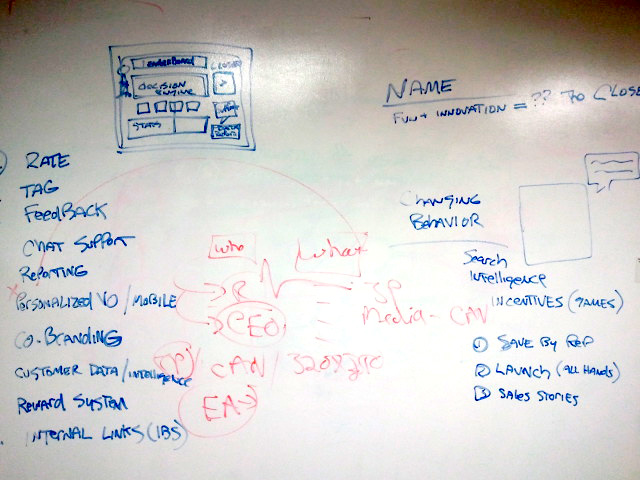 LEADERBOARD
CLOSER
DECISION
ENGINE
STATS
NAME
FUN + INNOVATION = ?? TO CLOSE
RATE
TAG
FeedBACK
CHAT SUPPORT
REPORTING
PERSONALIZED VO / MOBILE
CO-BRANDING
CUSTOMER DATA / INTELLIGENCE
REWARD SYSTEM
INTERNAL LINKS (IBS)
who
what
R
CEO
SP
Media - CAN
CAN /
EA
CHANGING
BEHAVIOR
Search
Intelligence
INCENTIVES (GAMES)
1 SAVE BY REP
2 LAUNCH (ALL HANDS)
3 SALES STORIES